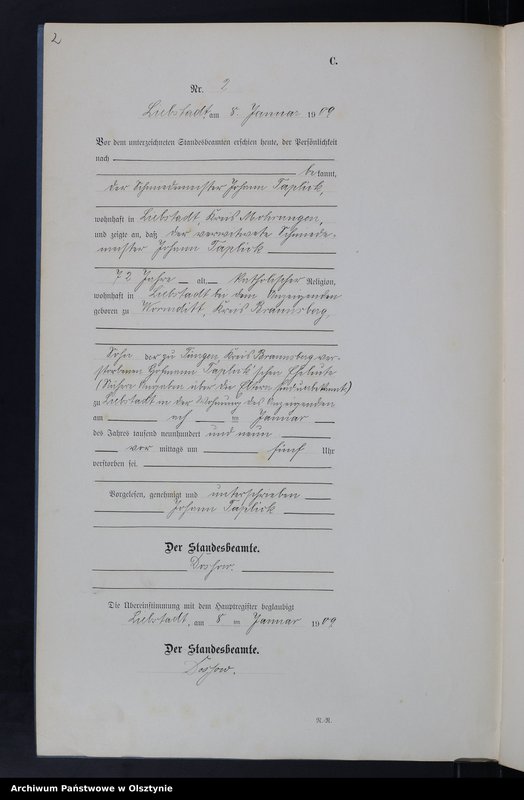 2
C.
Nr. 2
Liebstadt am 8. Januar 1909
Vor dem unterzeichneten Standesbeamten erschien heute, der Persönlichkeit
nach
be kannt,
der Schmiedemeister Johann Taplick,
wohnhaft in Liebstadt, Kreis Mohrungen,
und zeigte an, daß der verwitwete Schmiede-
meister Johann Taplick
72 Jahre alt, katholischer Religion,
wohnhaft in Liebstadt bei dem Anzeigenden
geboren zu Wormditt, Kreis Braunsberg
Sohn der zu Tüngen, Kreis Braunsberg ver-
storbenen Taplick'schen Eheleute
(Nähere Angaben über die Eltern sind unbekannt)
zu Liebstadt in der Wohnung des Anzeigenden
am ach ten Januar
des Jahres tausend neunhundert und neun
vor mittags um fünf Uhr
verstorben sei.
Vorgelesen, genehmigt und unterschrieben
Johann Taplick
Der Standesbeamte.
Die Übereinstimmung mit dem Hauptregister beglaubigt
Liebstadt, am 8 ten Januar 1909
Der Standesbeamte.
N.-R.
Archiwum Państwowe w Olsztynie